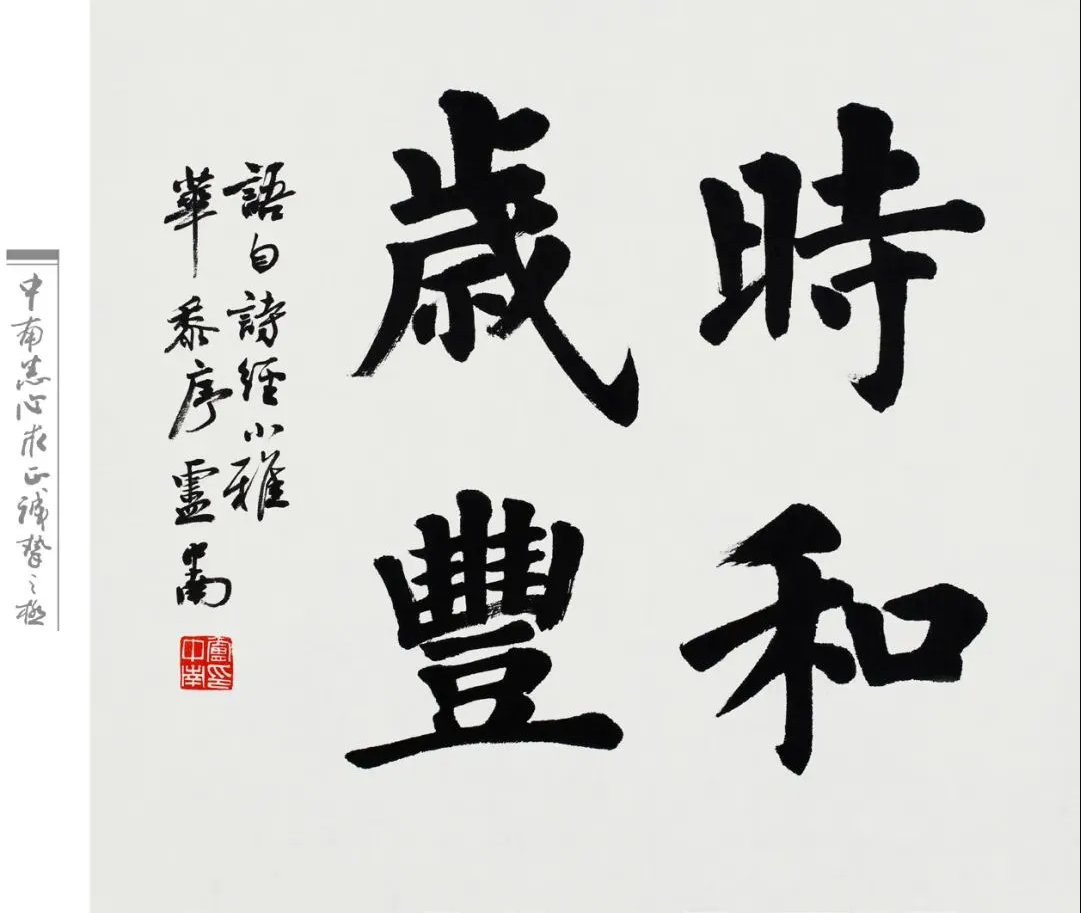 時和
歳豐
語自詩經小雅
華黍序盧中南
盧印
中南
中南悉心求正誠摯之極